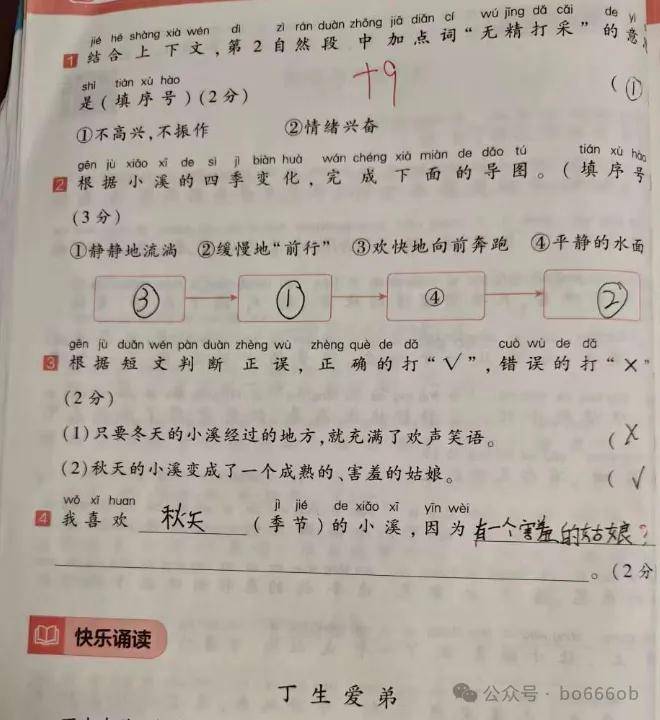 jié hé shàng xià wén dì zì rán duàn zhōng jiā diǎn cí wú jīng dǎ cǎi de yì
1 结合上下文,第2自然段中加点词“无精打采”的意
shì tián xù hào
是(填序号)(2分) +9 (①
①不高兴,不振作 ②情绪兴奋
gēn jù xiǎo xī de sì jì biàn huà wán chéng xià miàn de dǎo tú tián xù hào
2 根据小溪的四季变化,完成下面的导图。(填序号
(3分)
①静静地流淌 ②缓慢地“前行” ③欢快地向前奔跑 ④平静的水面
③ ① ④ ②
gēn jù duǎn wén pàn duàn zhèng wù zhèng què de dǎ cuò wù de dǎ
3 根据短文判断正误,正确的打“√”,错误的打“×”
(2分)
(1)只要冬天的小溪经过的地方,就充满了欢声笑语。 (×
(2)秋天的小溪变成了一个成熟的、害羞的姑娘。 (√
wǒ xǐ huan jì jié de xiǎo xī yīn wèi
4 我喜欢 秋天 (季节)的小溪,因为 有一个害羞的姑娘?
。(2分
快乐诵读
丁生爱弟
公众号·bo666ob